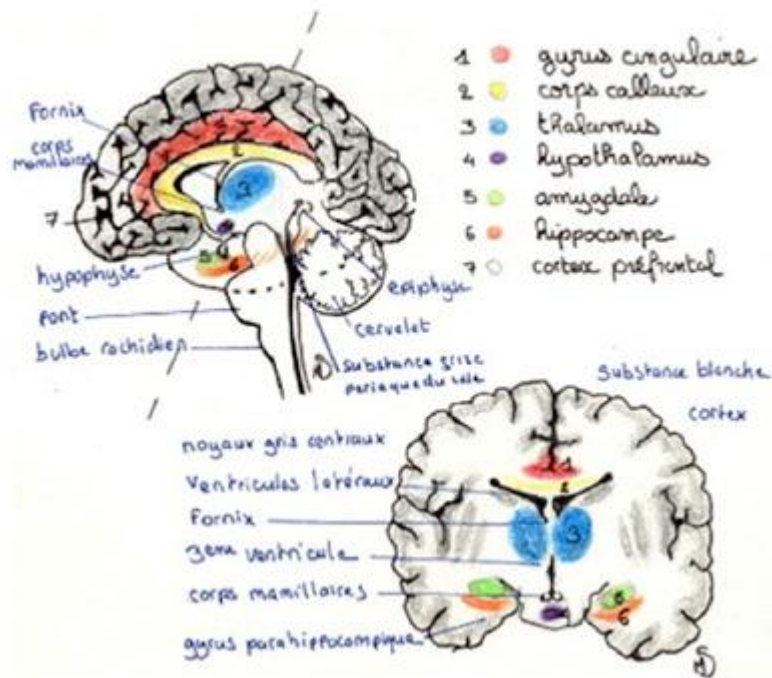 1 gyrus cingulaire
2 corps calleux
3 thalamus
4 hypothalamus
5 amygdale
6 hippocampe
7 cortex préfrontal
Fornix
corps
mamillaires
7
2
3
5
4
6
hypophyse
pont
bulbe rachidien
epiphyse
cervelet
substance grise
periaqueducale
substance blanche
cortex
noyaux gris centraux
ventricules latéraux
Fornix
3eme ventricule
corps mamillaires
gyrus parahippocampique
1
2
3
5
6